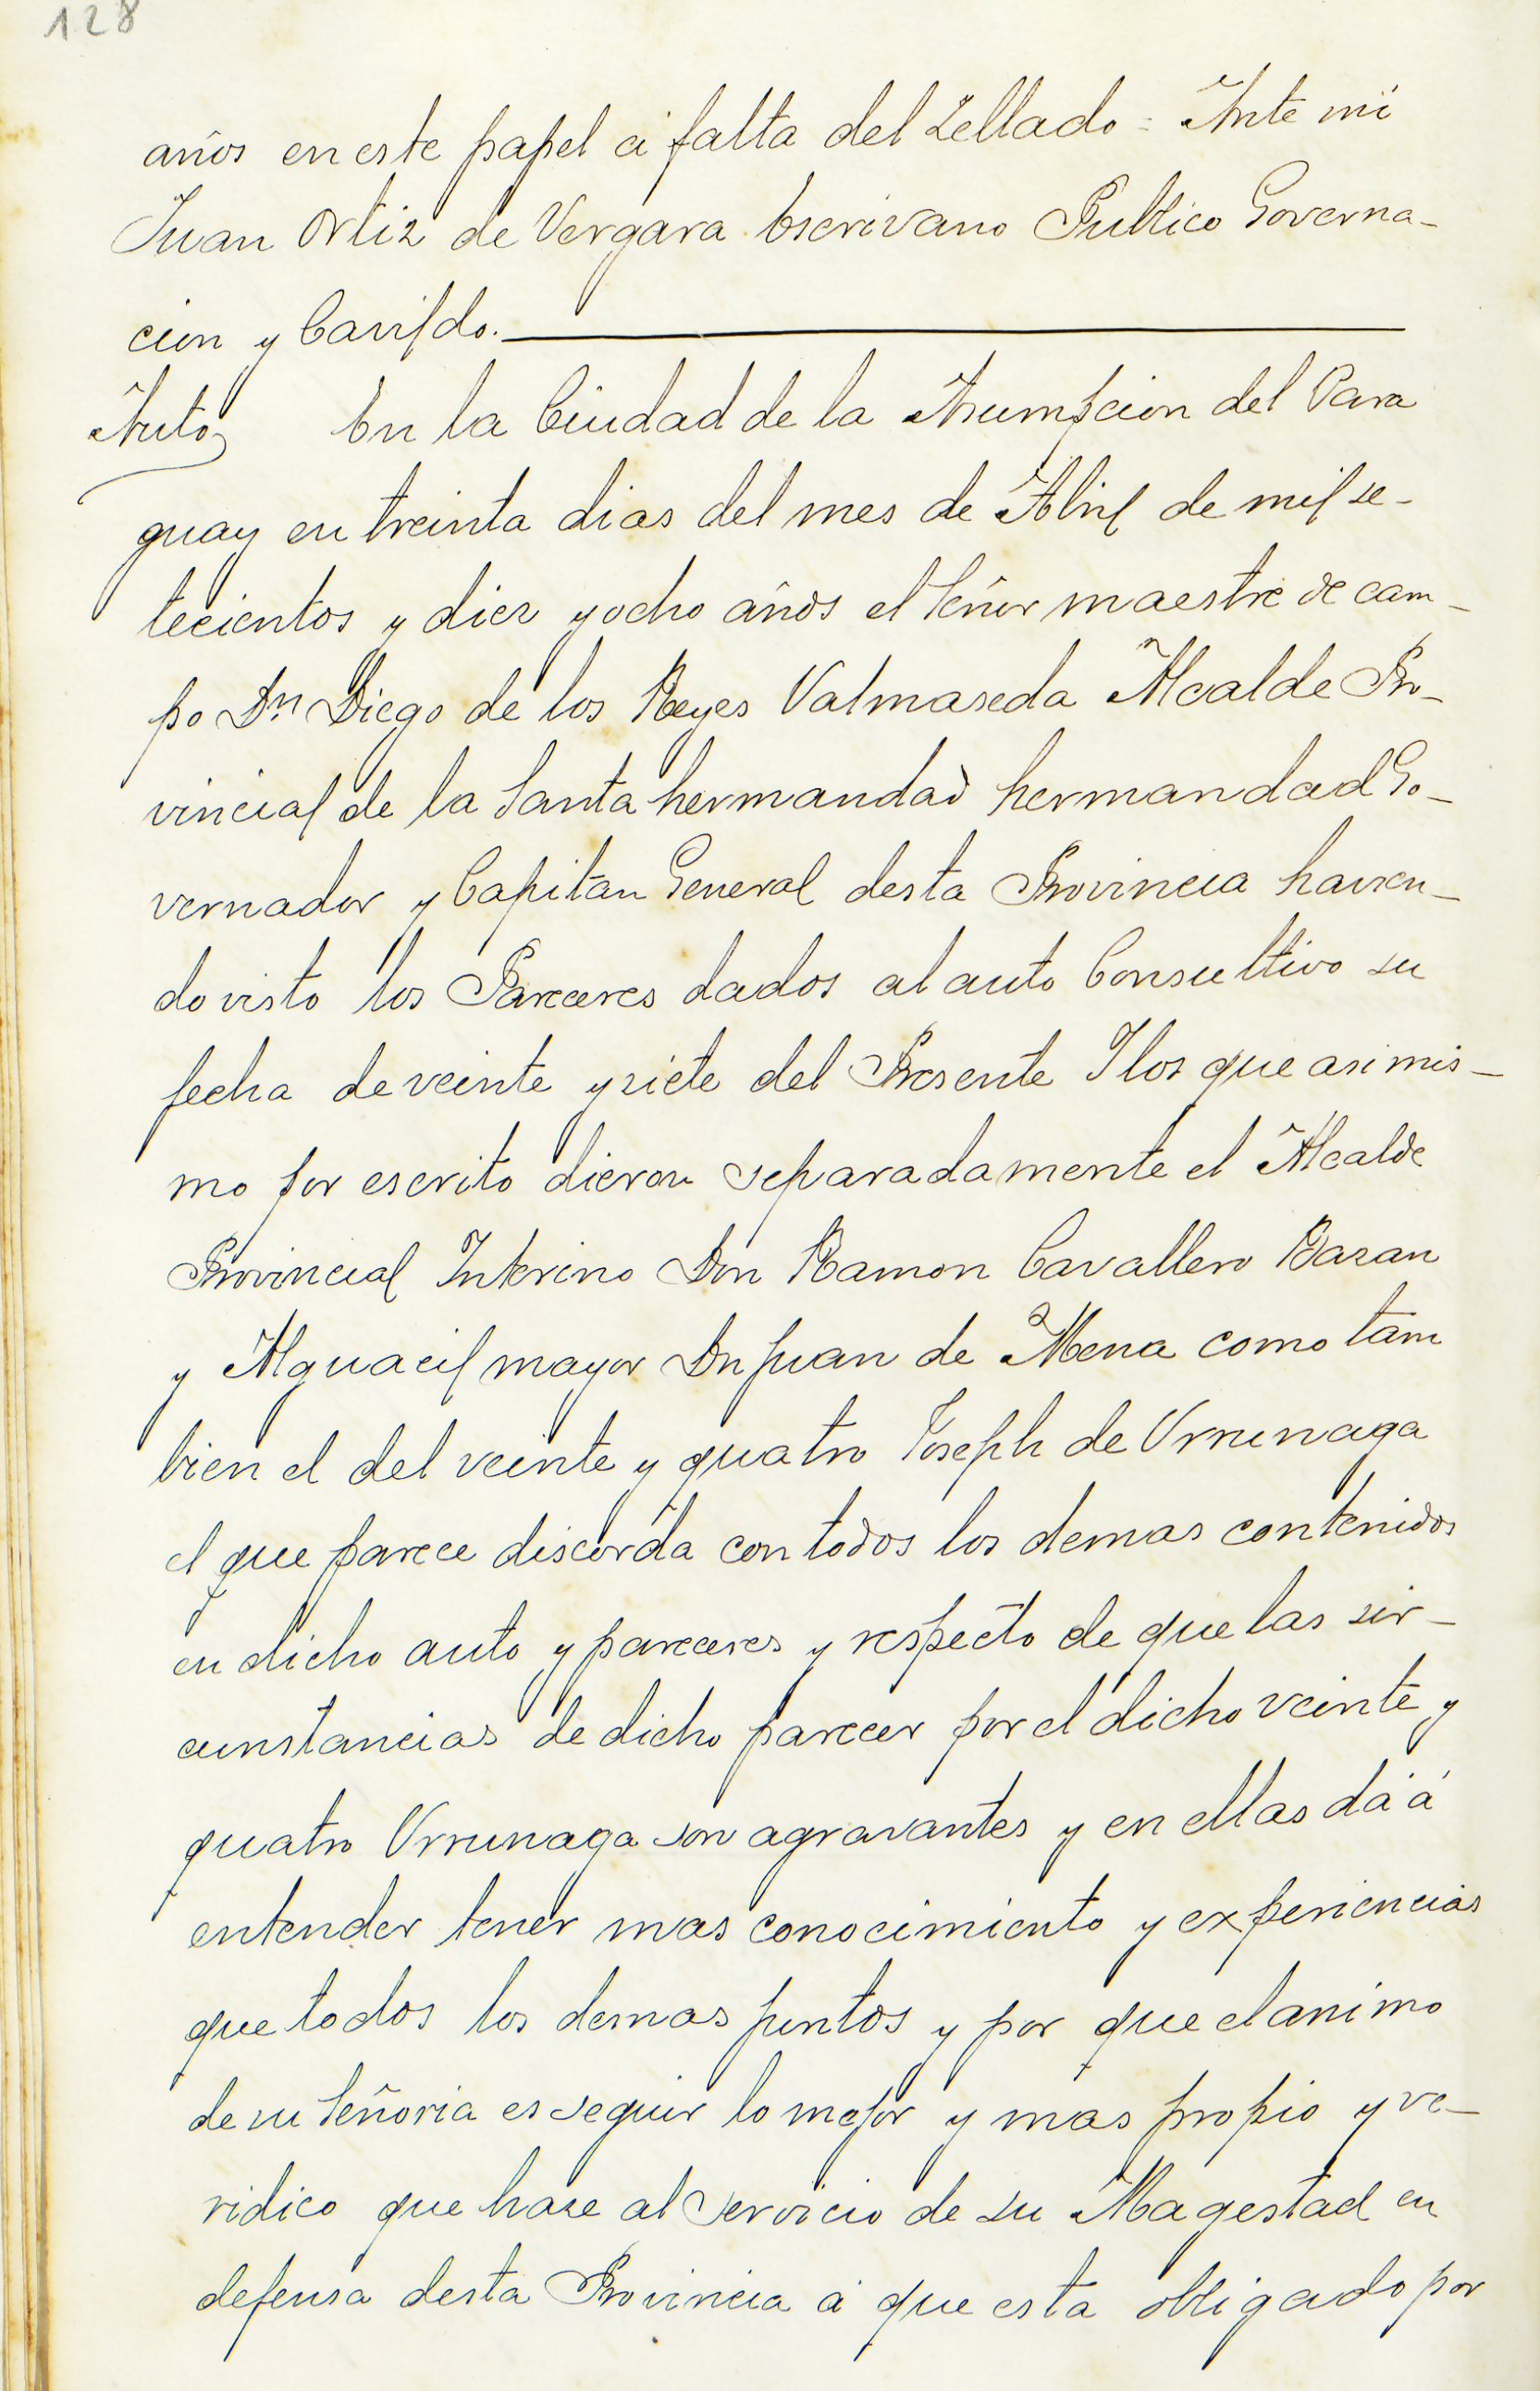 128
años en este papel á falta del Zellado = Ante mi
Juan Ortiz de Vergara Escrivano Publico Governa-
cion y Cavildo.
Auto En la Ciudad de la Asumpcion del Para
guay en treinta dias del mes de Abril de mil se-
tecientos y diez y ocho años el Señor maestre de cam-
po Dn Diego de los Reyes Valmaseda Alcalde Pro-
vincial de la Santa hermandad hermandad Go-
vernador y Capitan General desta Provincia havien-
do visto los Pareceres dados al auto Consultivo su
fecha de veinte y siete del Presente Y los que asimis-
mo por escrito dieron separadamente el Alcalde
Provincial Interino Don Ramon Cavallero Bazan
y Alguacil mayor Dn Juan de Mena como tam
bien el del veinte y quatro Joseph de Urrunaga
el que parece discorda con todos los demas contenidos
en dicho auto y pareceres y respecto de que las sir-
cunstancias de dicho parecer por el dicho veinte y
quatro Urrunaga son agravantes y en ellas dá á
entender tener mas conocimiento y experiencias
que todos los demas juntos y por que el animo
de su Señoria es seguir lo mejor y mas propio y ve-
ridico que hase al servicio de su Magestad en
defensa desta Provincia á que esta obligado por